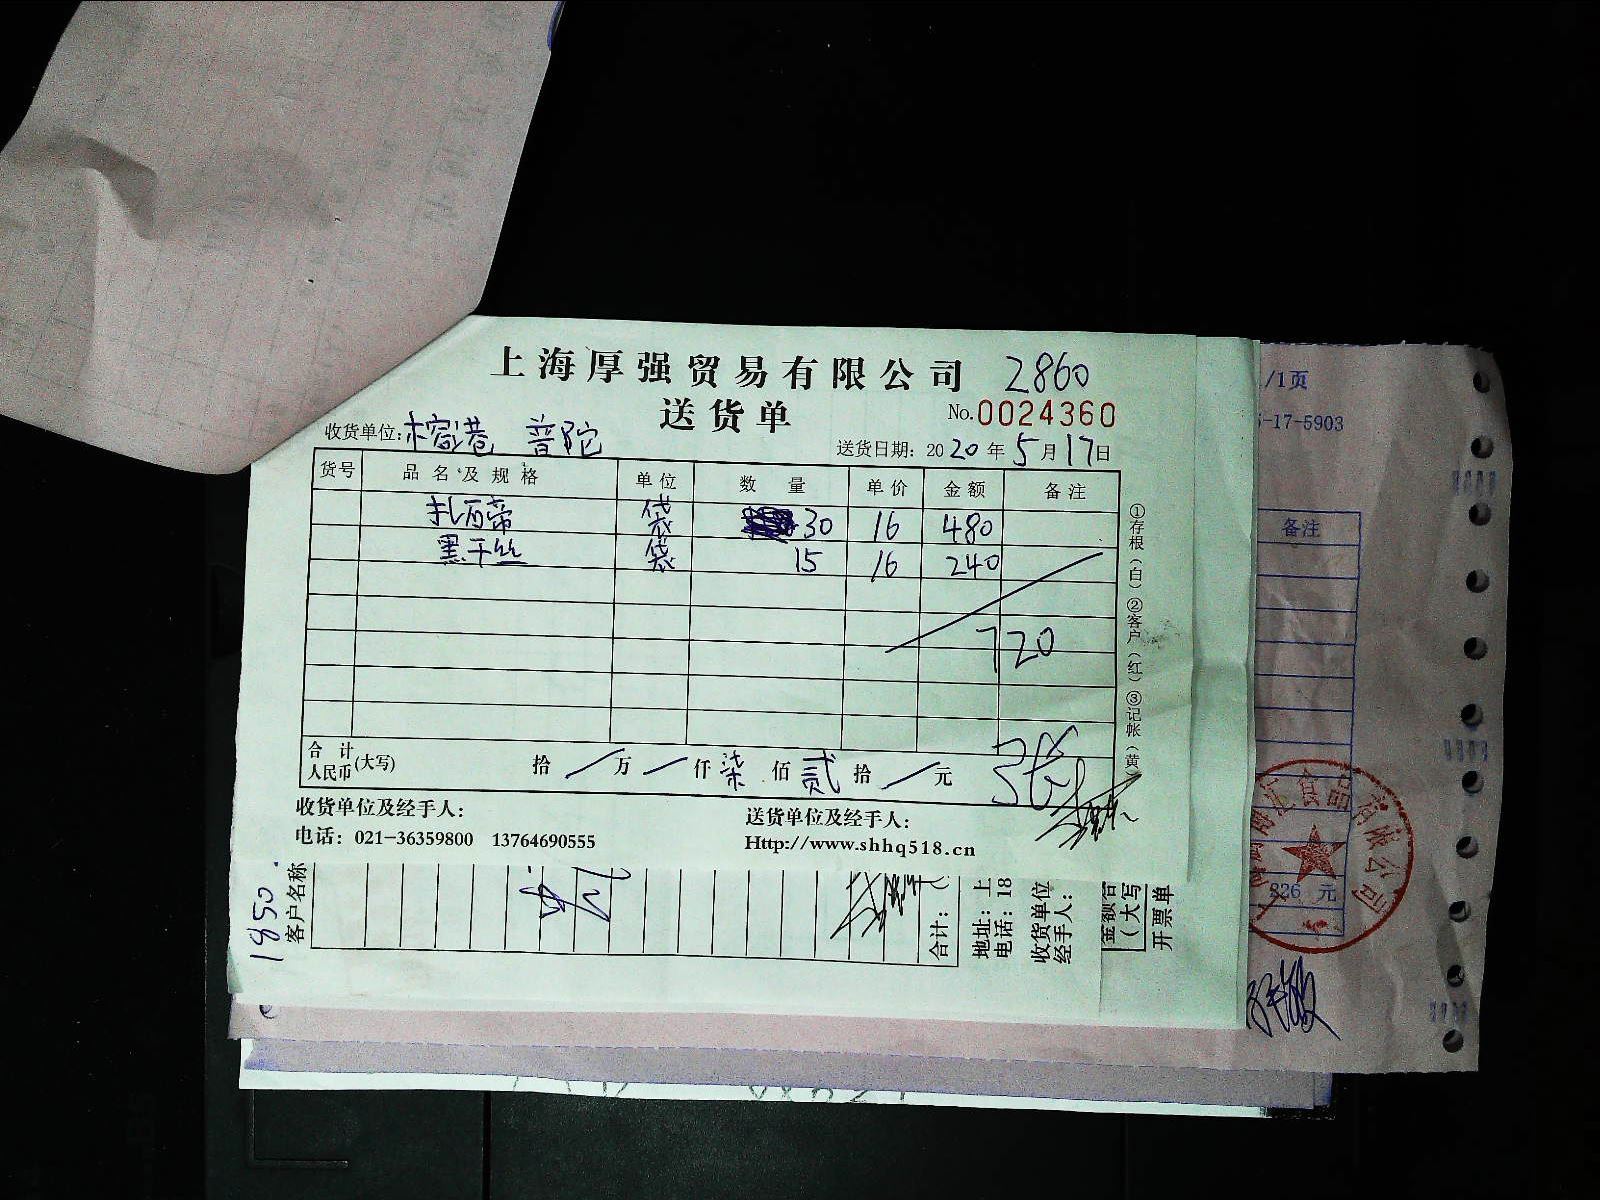 上海厚强贸易有限公司 2860
送货单 No.0024360
收货单位:榕港 普陀 送货日期: 2020年5月17日
货号 品名及规格 单位 数量 单价 金额 备注
扎百帝 袋 30 16 480
黑干丝 袋 15 16 240
720
合计人民币(大写) 拾 / 万 / 仟 柒 佰 贰 拾 / 元
张
收货单位及经手人: 送货单位及经手人:
电话: 021-36359800 13764690555 Http://www.shhq518.cn
①存根(白)②客户(红)③记帐(黄)
1850
客户名称
合计:
地址: 上
电话: 18
收货单位
经手人:
(大写)
开票单
/1页
-17-5903
备注
826 元
食品有限公司